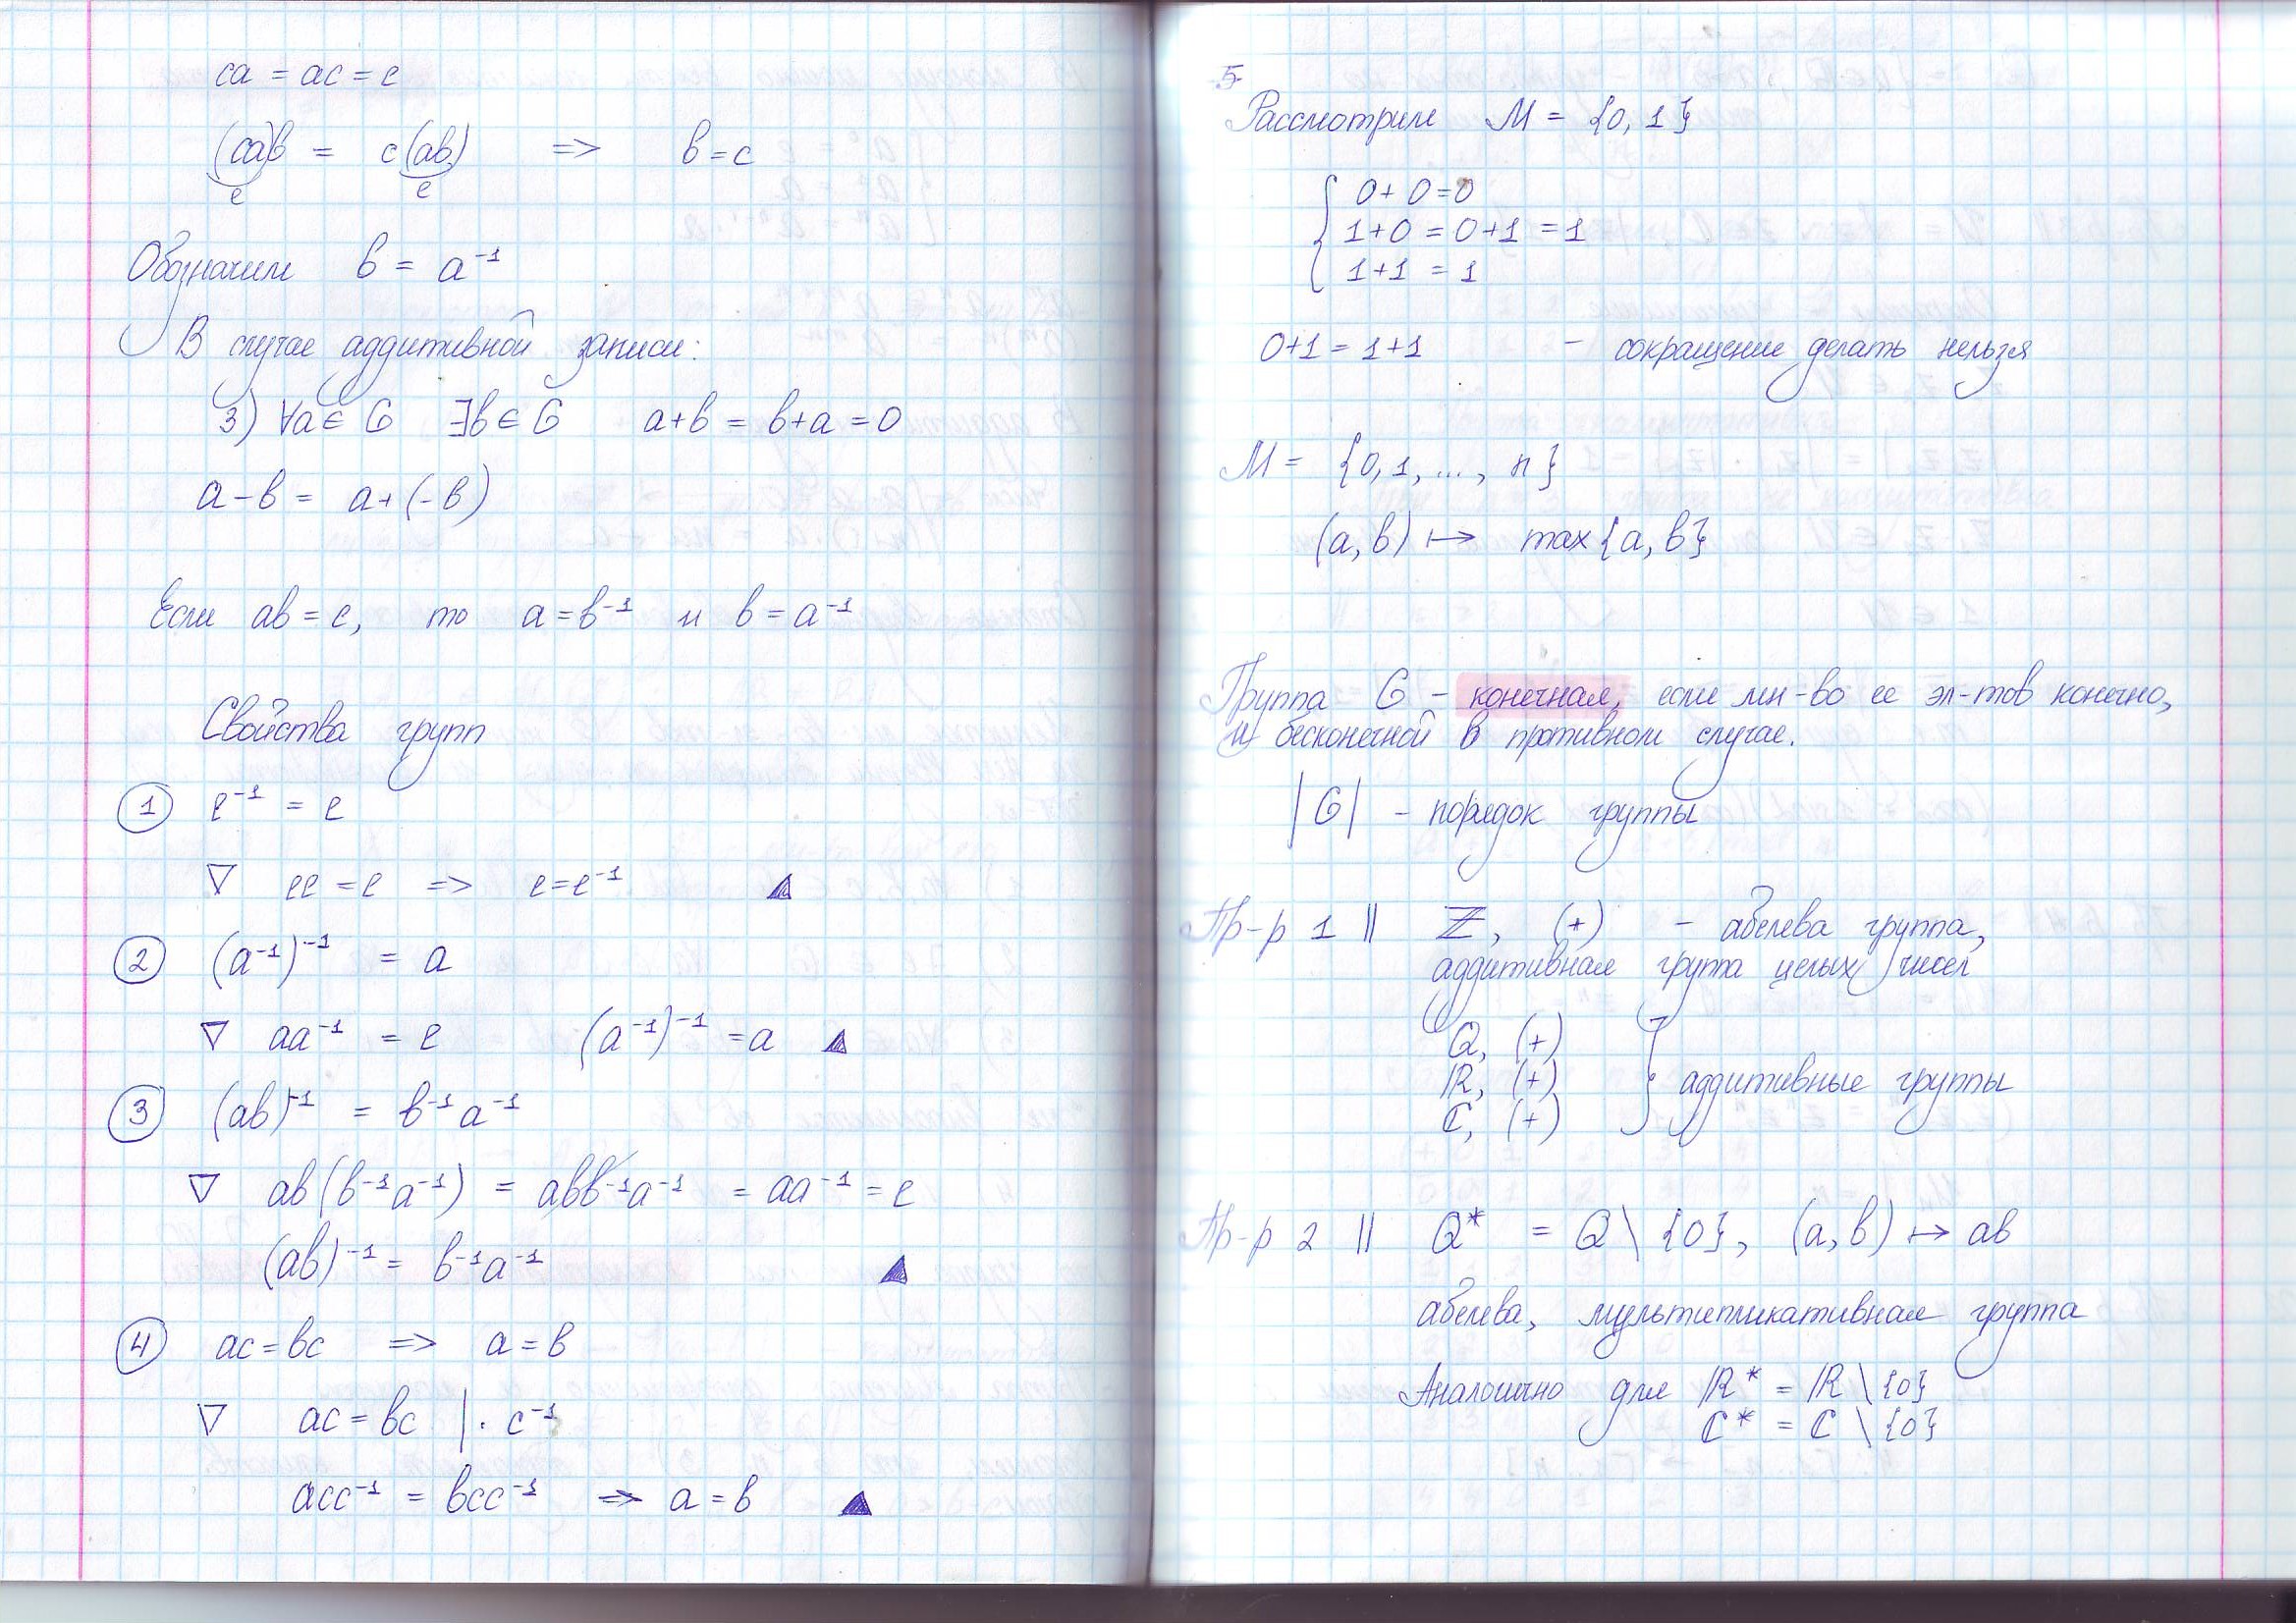 ca = ac = e
(ca)b = c(ab) => b = c
e e
Обозначим b = a⁻¹
В случае аддитивной записи:
3) ∀a ∈ G ∃b ∈ G a+b = b+a = 0
a - b = a + (-b)
Если ab = e, то a = b⁻¹ и b = a⁻¹
Свойства групп
① e⁻¹ = e
▽ ee = e => e = e⁻¹ ▲
② (a⁻¹)⁻¹ = a
▽ aa⁻¹ = e (a⁻¹)⁻¹ = a ▲
③ (ab)⁻¹ = b⁻¹a⁻¹
▽ ab(b⁻¹a⁻¹) = abb⁻¹a⁻¹ = aa⁻¹ = e
(ab)⁻¹ = b⁻¹a⁻¹ ▲
④ ac = bc => a = b
▽ ac = bc | · c⁻¹
acc⁻¹ = bcc⁻¹ => a = b ▲
5
Рассмотрим M = {0, 1}
0 + 0 = 0
1+0 = 0+1 = 1
1+1 = 1
0+1 = 1+1 - сокращение делать нельзя
M = {0, 1, ..., n}
(a, b) ↦ max{a, b}
Группа G - конечная, если мн-во ее эл-тов конечно,
и бесконечной в противном случае.
|G| - порядок группы
Пр-р 1 || ℤ, (+) - абелева группа,
аддитивная группа целых чисел
Q, (+)
ℝ, (+) } аддитивные группы
ℂ, (+)
Пр-р 2 || Q* = Q \ {0}, (a, b) ↦ ab
абелева, мультипликативная группа
Аналогично для ℝ* = ℝ \ {0}
ℂ* = ℂ \ {0}